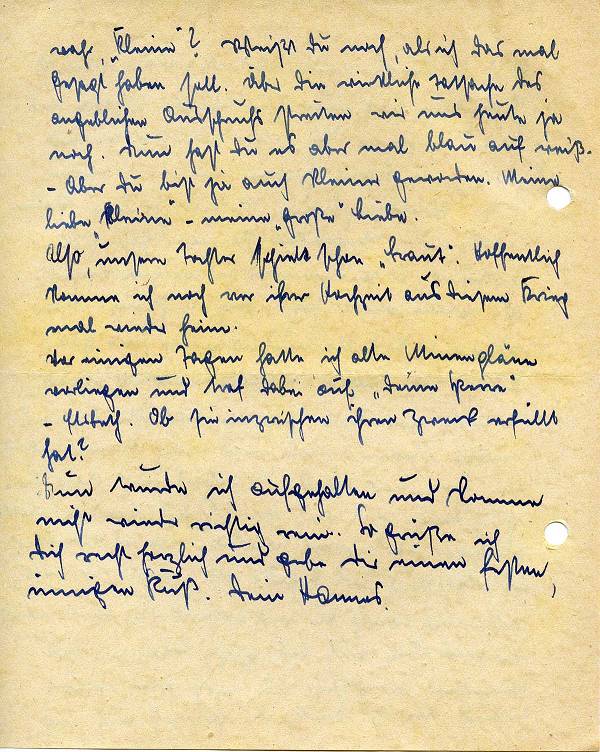 wahr, „Kleine"? Weißt du noch, als ich das mal
gesagt haben soll. Über die wirkliche Tatsache des
angeblichen Ausspruchs streiten wir uns heute ja
noch. Nun hast du es aber mal blau auf weiß.
- Aber du bist ja auch kleiner geworden. Meine
liebe „Kleine" - meine „große" Liebe.
Also, unsere Tochter spielt schon „Braut". Hoffentlich
komme ich noch vor ihrer Hochzeit aus diesem Krieg
mal wieder heim.
Vor einigen Tagen hatte ich alte Minenpläne
vorliegen und traf dabei auf „deine
- Elsbeth. Ob sie inzwischen ihren Zweck erfüllt
hat?
Nun wurde ich aufgehalten und komme
nicht wieder richtig rein. So grüße ich
Dich recht herzlich und gebe dir einen festen,
innigen Kuß. Dein Hannes.